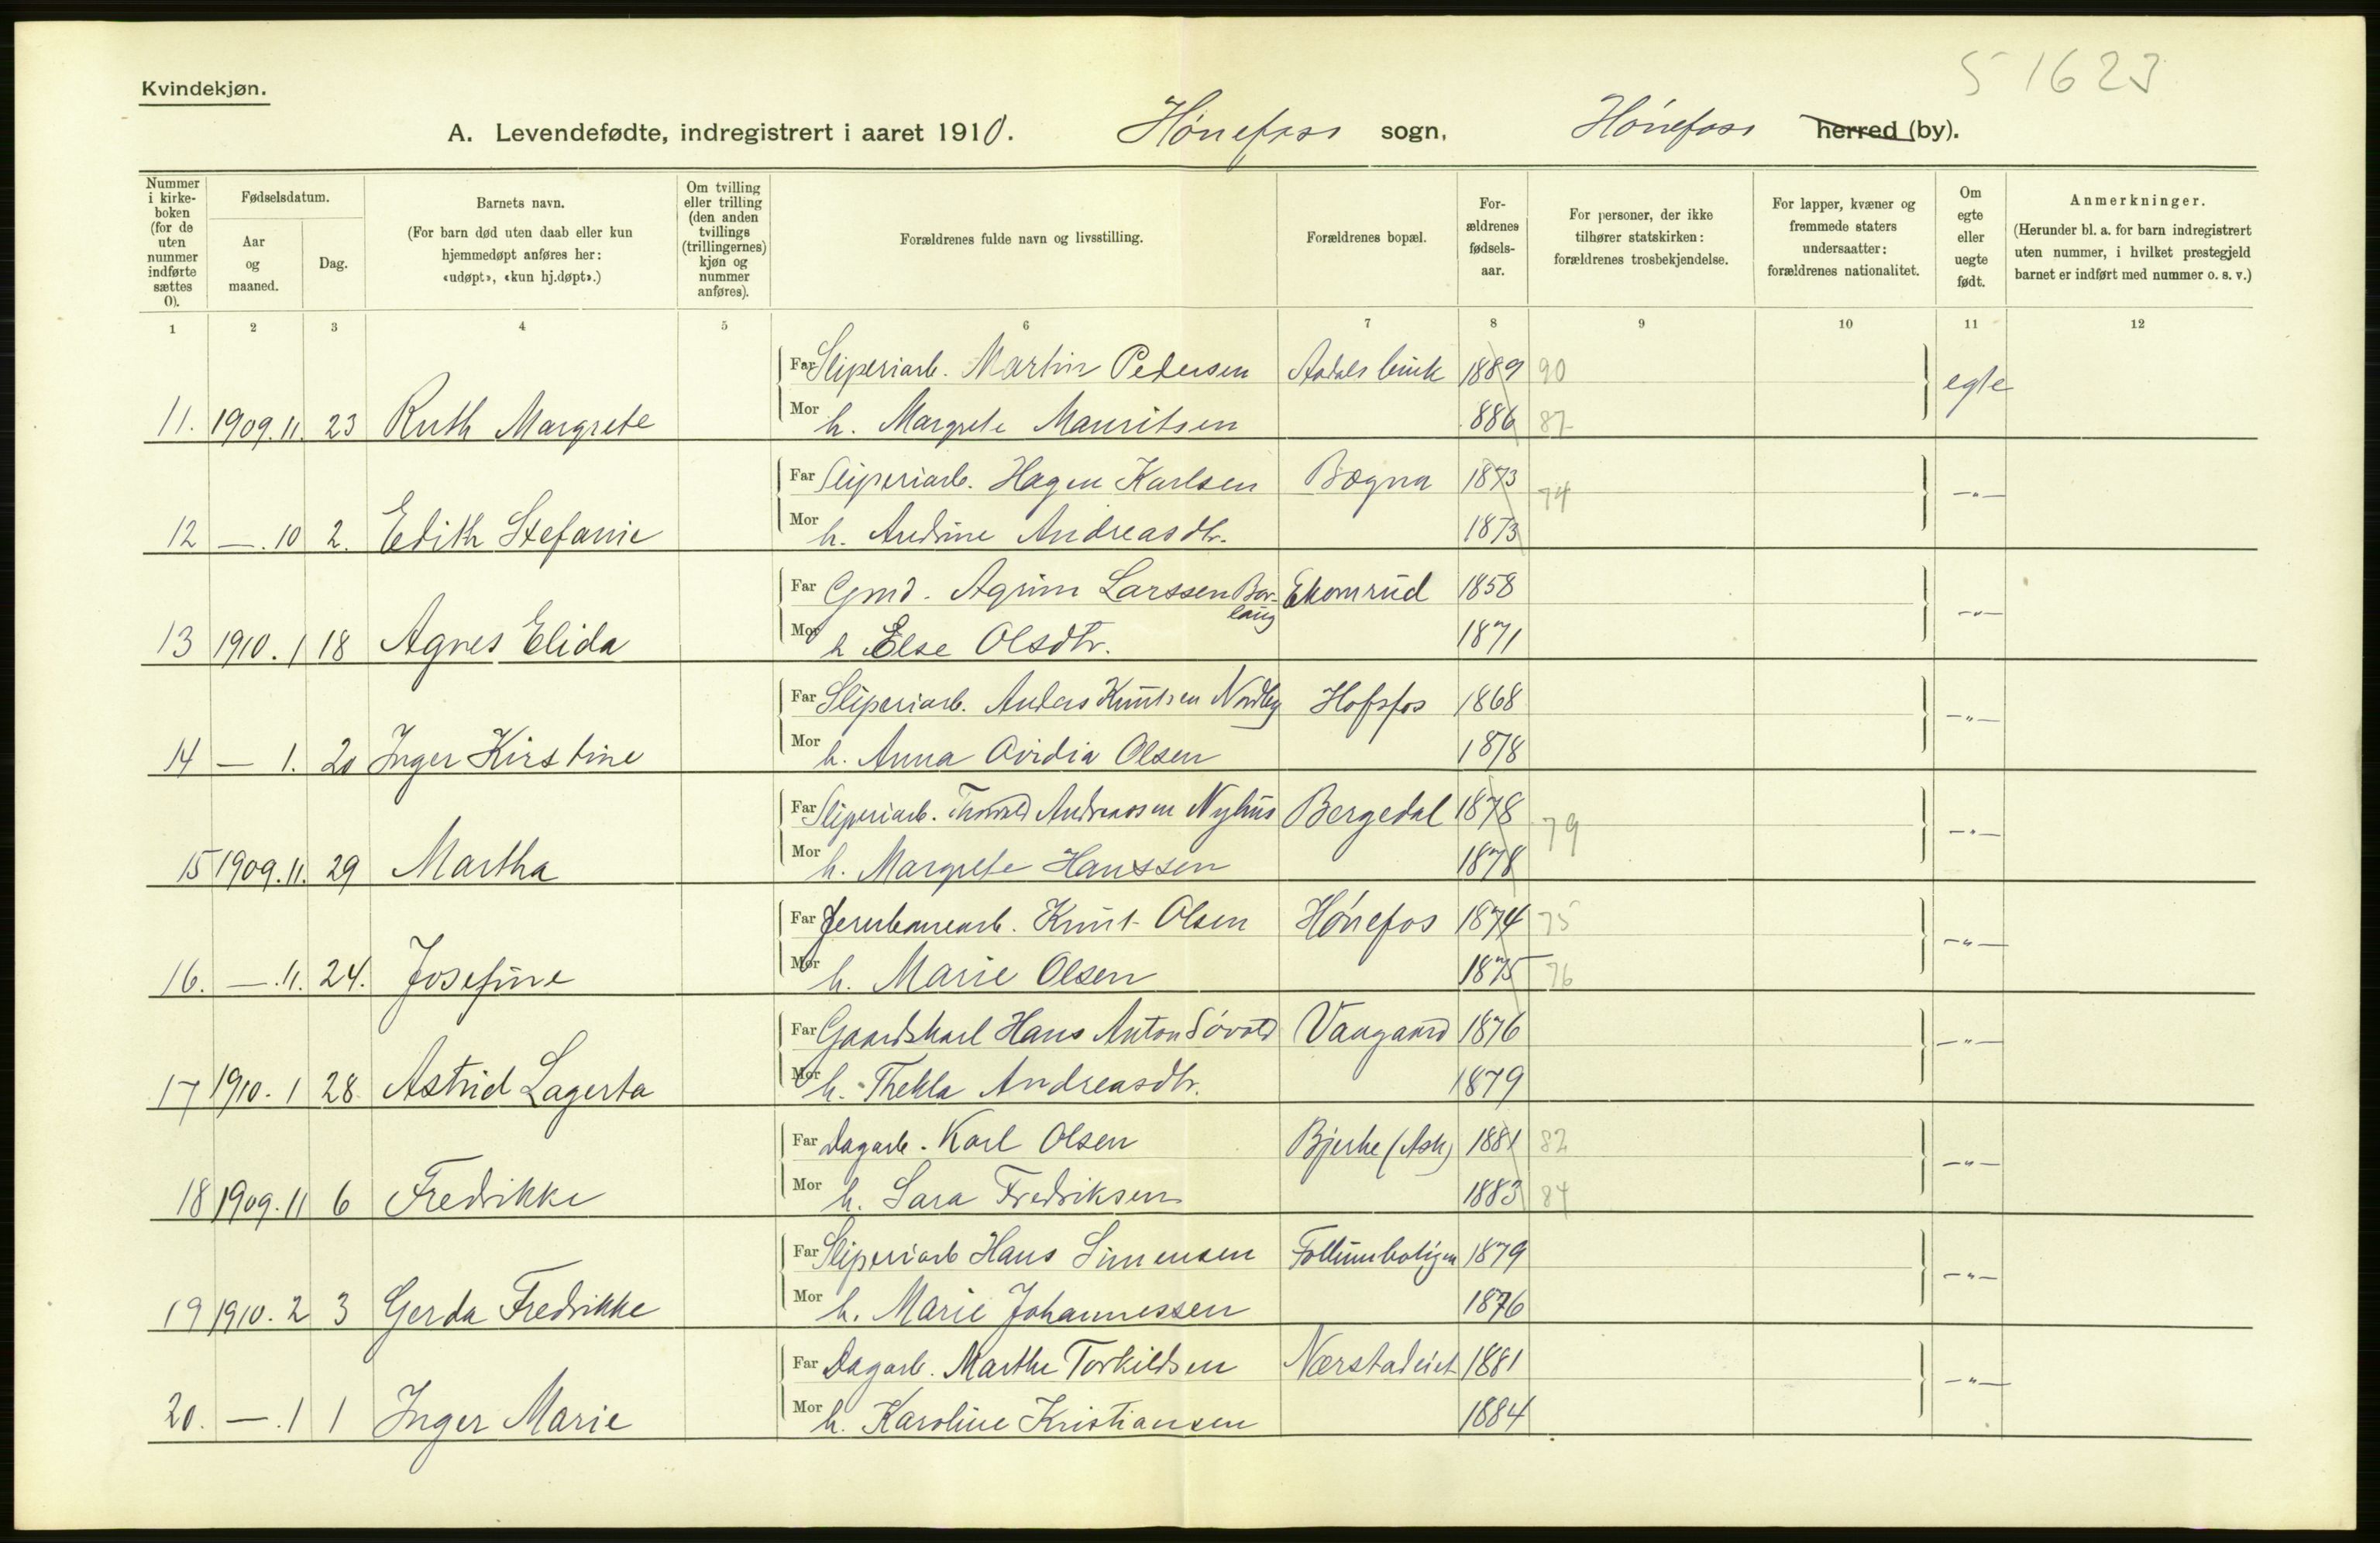 5 1623
Kvindekjøn.
A. Levendefødte, indregistrert i aaret 1910. Hønefoss sogn, Hønefoss herred (by).
Nummer i kirkeboken (for de uten nummer indførte sættes 0).
Fødselsdatum.
Aar og maaned.
Dag.
Barnets navn.
(For barn død uten daab eller kun hjemmedøpt anføres her: «udøpt», «kun hj.døpt».)
Om tvilling eller trilling (den anden tvillings (trillingernes) kjøn og nummer anføres).
Forældrenes fulde navn og livsstilling.
Forældrenes bopæl.
For-ældrenes fødsels-aar.
For personer, der ikke tilhører statskirken: forældrenes trosbekjendelse.
For lapper, kvæner og fremmede staters undersaatter: forældrenes nationalitet.
Om egte eller uegte født.
Anmerkninger.
(Herunder bl. a. for barn indregistrert uten nummer, i hvilket prestegjeld barnet er indført med nummer o. s. v.)
1 2 3 4 5 6 7 8 9 10 11 12
Far Sliperiarb. Martin Pedersen Aadalsbruk 1889 90 egte
11. 1909.11. 23 Ruth Margrete Mor h. Margrete Mauritsen 886 87
Far Sliperiarb. Hagen Karlsen Bægna 1873 74 —"—
12 —.10 2. Edith Stefanie Mor h. Andrine Andreasdtr. 1873
Far Gmd. Agrim Larssen Borlaug Ekornrud 1858 —"—
13 1910.1 18 Agnes Elida Mor h Else Olsdtr. 1871
Far Sliperiarb. Anders Knutsen Nordby Hofsfos 1868 —"—
14 — 1. 20 Inger Kirstine Mor h. Anna Ovidia Olsen 1878
Far Sliperiarb. Thorvald Andreassen Nyhus Bergedal 1878 79 —"—
15 1909.11. 29 Martha Mor h. Margrete Hanssen 1878
Far Jernbanearb. Knut Olsen Hønefos 1874 75 —"—
16. —.11. 24. Josefine Mor h. Marie Olsen 1875 76
Far Gaardskarl Hans Anton Søvold Vaagaard 1876 —"—
17 1910.1 28 Astrid Lagerta Mor h. Thekla Andreasdtr. 1879
Far Dagarb. Karl Olsen Bjerke (Ask) 1881 82 —"—
18 1909.11 6 Fredrikke Mor h. Sara Fredriksen 1883 84
Far Sliperiarb Hans Simensen Follumboligen 1879 —"—
19 1910.2 3 Gerda Fredrikke Mor h. Marie Johannessen 1876
Far Dagarb. Marthe Torkildsen Nærstadeiet 1881 —"—
20. —.1 1 Inger Marie Mor h. Karoline Kristiansen 1884